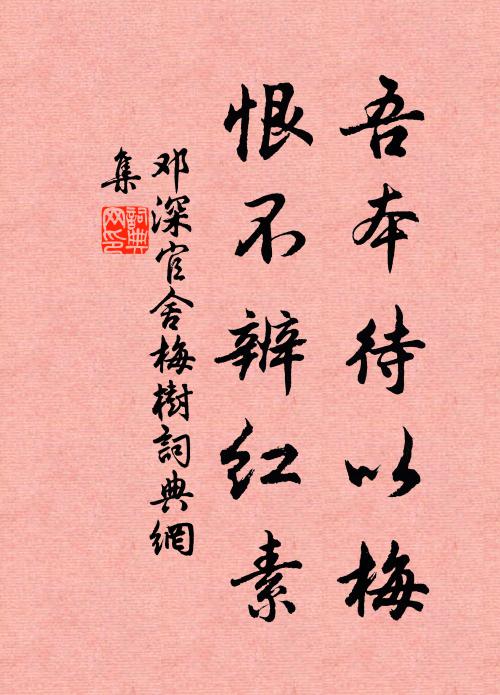 吾本待以梅
恨不辨红素
邓深官舍梅樹詞典網
集
詞典网印